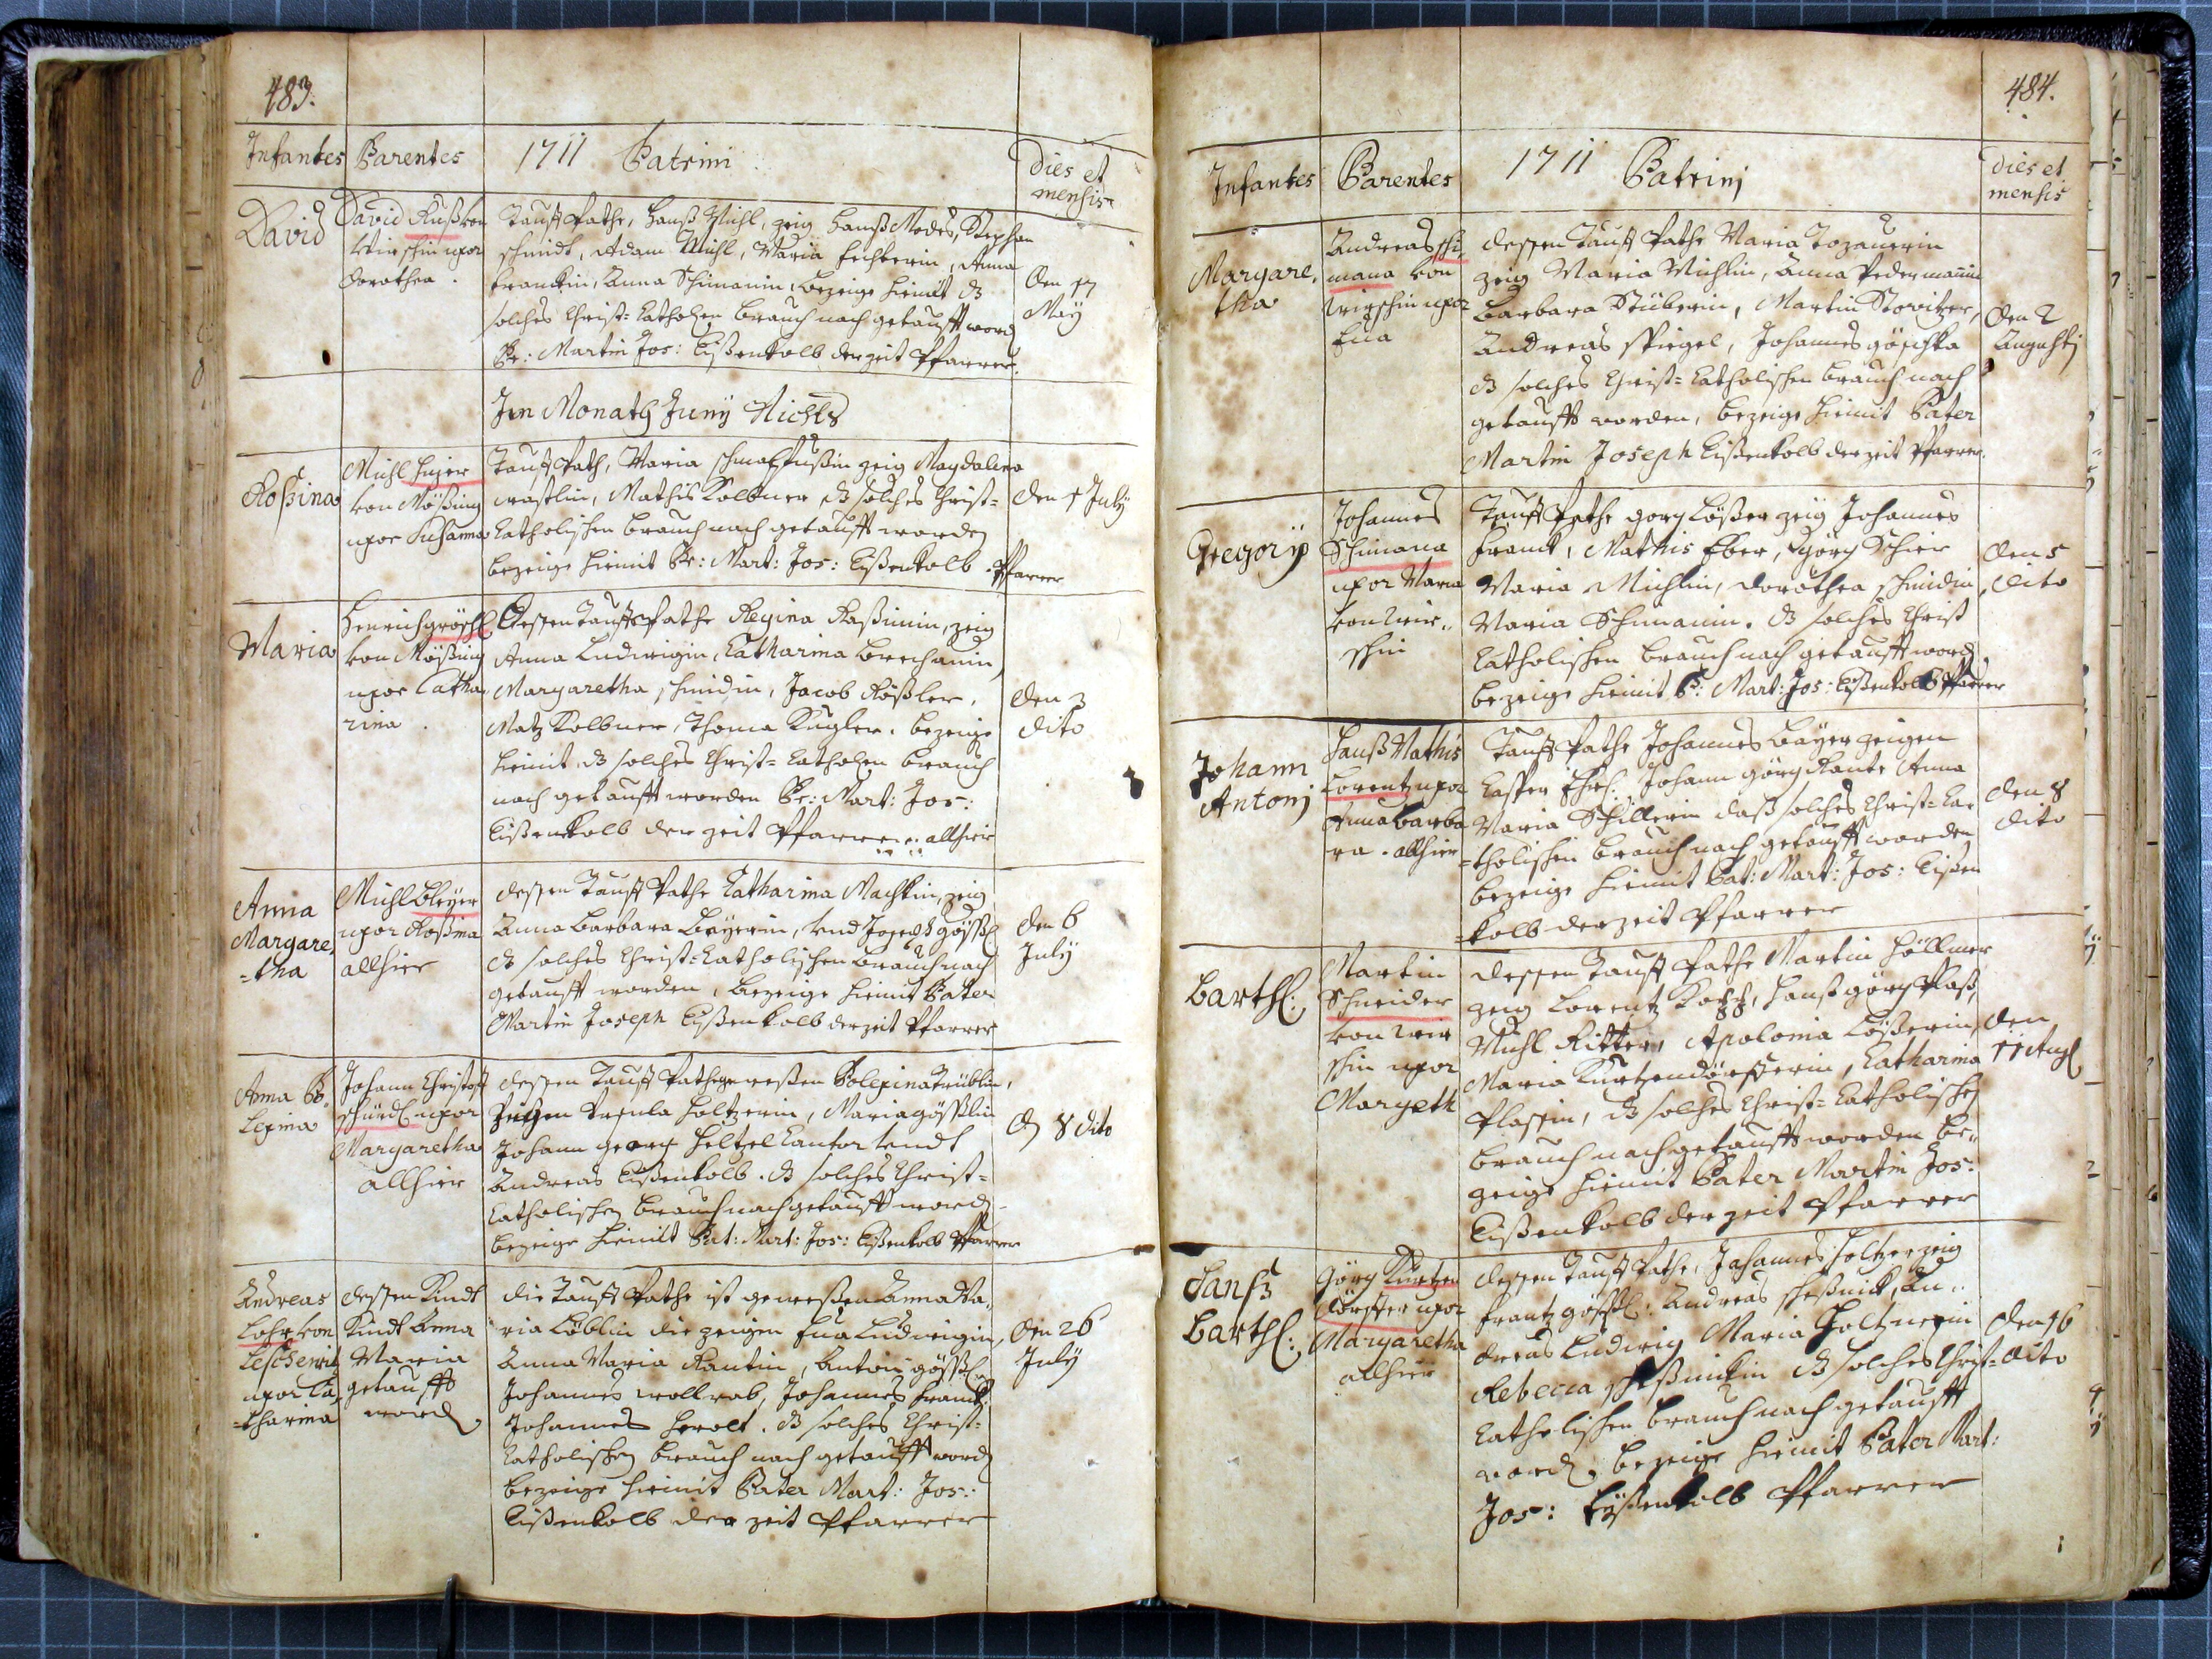 483.
Infantes Parentes 1711 Patrini dies et mensis
David
David Rußkon
Wirschin uxor
Dorothea.
Tauff Pathe, Hanß Michl, zeig Hanß Modes, Stephan
schmidt, Adam Michl, Maria Anna
Franckin, Anna Schimanin, bezeige hiemit dz
solches Christ-Catholen brauch nach getaufft word
Pr: Martin Jos: Eißenkolb der zeit Pfarrer.
Den 17
May
Im Monath Juny Nichts
Roßina
Michl
von Mößing
uxor Susanna
Tauff Path, Maria zeig Magdalena
Mathis Kolbner, dz solches Christ-
Catholischen brauch nach getaufft worden
bezeige hiemit Pr: Mart: Jos: Eißenkolb. Pfarrer
den 1 July
Maria
Henrich gröschl
von Mößing
uxor Catha
rina.
Dessen Tauff Pathe Regina zeig
Anna Ludwigin, Catharina
Margaretha schmidin, Jacob Rößler,
Matz Kolbner, Thoma Kugler. bezeige
hiemit, dz solches Christ-Catholen brauch
nach getaufft worden Pr: Mart: Jos:
Eißenkolb der zeit Pfarrer allhier
den 3
dito
Anna
Margare
-tha
Michl Beyer
uxor Roßina
allhier
dessen Tauff Pathe Catharina Machkin, zeig
Anna Barbara Beyerin, vnd Joseph gößl
dz solches Christ-Catholischen brauch nach
getaufft worden, bezeige hiemit Pater
Martin Joseph Eißenkolb der zeit Pfarrer
den 6
July
Anna Po
lexina
Johann Christoff
schürdl uxor
Margaretha
allhier
dessen Tauff Pathe geweßen Polexina Trüblin,
Zeigen Ursula Holtzerin, Maria gößlin
Johann georg Heltzel Cantor vndt
Andreas Eißenkolb. dz solches Christ-
Catholischen brauch nach getaufft word
bezeige hiemit Pat: Mart: Jos: Eißenkolb Pfarrer
d 8 dito
Andreas
Lohr von
uxor Ca
-tharina
dessen Kindt
Kindt Anna
Maria
getaufft
word.
die Tauff Pathe ist geweßen Anna Ma
ria Löblin die zeigen Eua Ludwigin,
Anna Maria Rantin, Antoni gößl
Johannes wollrab, Johannes Franck
Johannes Herolt. dz solches Christ-
Catholischen brauch nach getaufft word
bezeige hiemit Pater Mart: Jos:
Eißenkolb der zeit Pfarrer
den 26
July
484.
Infantes Parentes 1711 Patrinj dies et mensis
Margare,
tha
Andreas schi,
mana von
wirschin uxor
Eua
dessen Tauff Pathe Maria Tozauerin
zeig Maria Michlin, Anna Pedermanin
Barbara Stüberin, Martin Stowitzer,
Andreas Spiegel, Johannes göschka
dz solches Christ-Catholischen brauch nach
getaufft worden, bezeige hiemit Pater
Martin Joseph Eißenkolb der zeit Pfarrer.
den 2
Augustj
Gregorÿ
Johannes
Schimana
uxor Maria
von wir-
schin
Tauff Pathe gorg Lößer zeig Johannes
Franck, Mathis Eber, görg Schier
Maria Michlin, Dorothea schmidin
Maria Schimanin. dz solches Christ
Catholischen brauch nach getaufft word
bezeige hiemit P: Mart: Jos: Eißenkolb Pfarrer
den 5
dito
Johann
Antonj
Hanß Mathis
Lorentz uxor
Anna barba
ra. allhier
Tauff Pathe Johannes Bäyer zeigen
Casper Johann görg Rante Anna
Maria Schillerin daß solches Christ-Ca
-tholischen brauch nach getaufft worden
bezeige hiemit Pat: Mart: Jos: Eißen
-kolb der zeit Pfarrer
den 8
dito
Barthl:
Martin
Schneider
von wir
schin uxor
Margeth
dessen Tauff Pathe Martin Höllmer
zeig Lorentz Hanß görg Ploß,
Michl Ritter, Apolonia Lößerin,
Maria Kurtzendörfferin, Catharina
Plossin, dz solches Christ-Catholischen
brauch nach getaufft worden be-
zeige hiemit Pater Martin Jos:
Eißenkolb der zeit Pfarrer
den
11 Aug
Hanß
Barthl:
Görg Kurtzen
dörffer uxor
Margaretha
allhier
dessen Tauff Pathe, Johannes Holtzer zeig
Frantz gößl: Andreas An-
dreas Ludwig Maria Holtznerin
Rebecca dz solches Christ-
Catholischen brauch nach getaufft
word, bezeige hiemit Pater Mart:
Jos: Eyßenkolb Pfarrer
den 16
dito